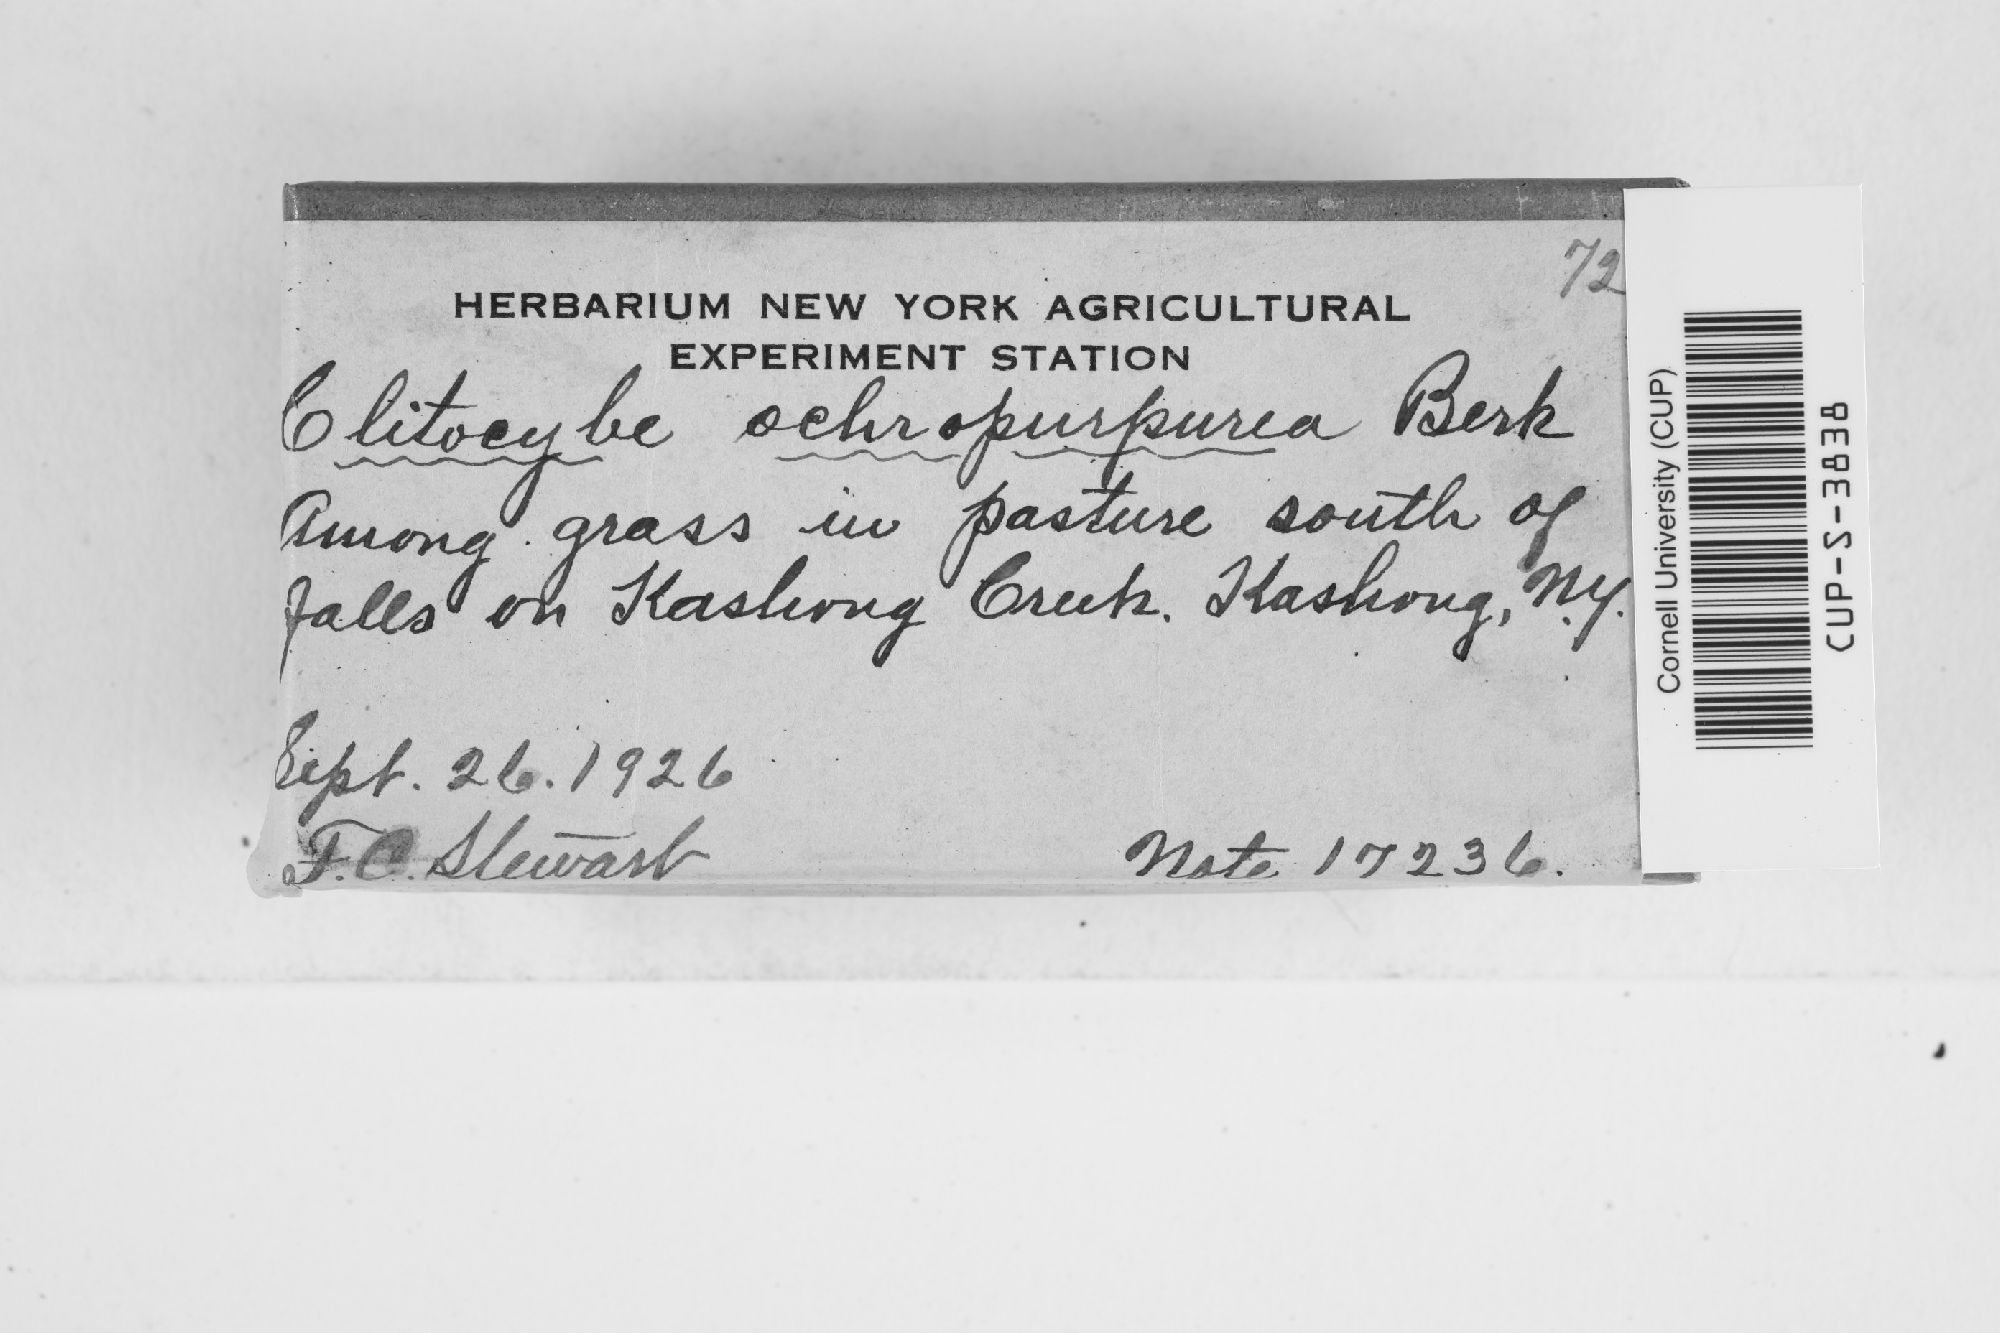 72
HERBARIUM NEW YORK AGRICULTURAL
EXPERIMENT STATION
Clitocybe ochropurpurea Berk
Among grass in pasture south of
falls on Kashong Creek. Kashong, N.Y.
Sept. 26. 1926
F.C. Stewart
Note 17236.
Cornell University (CUP)
CUP-S-3838